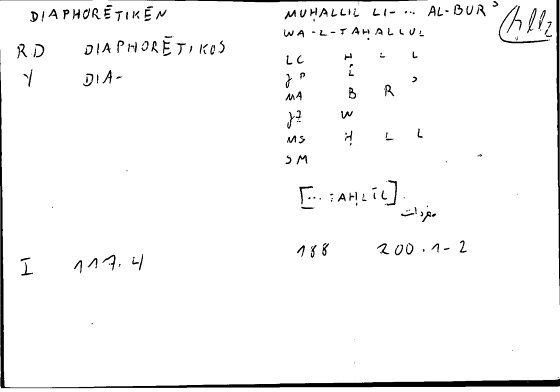 DIAPHORĒTIKĒN
RD DIAPHORĒTIKOS
Y DIA-
I 117.4
MUḤALLIL LI- ... AL-BURʾ
WA-L-TAḤALLUL
LC Ḥ L L
MA B R ʾ
W
MS Ḥ L L
SM
[... TAḤLĪL]
مفردات
188 200.1-2
ḥll2